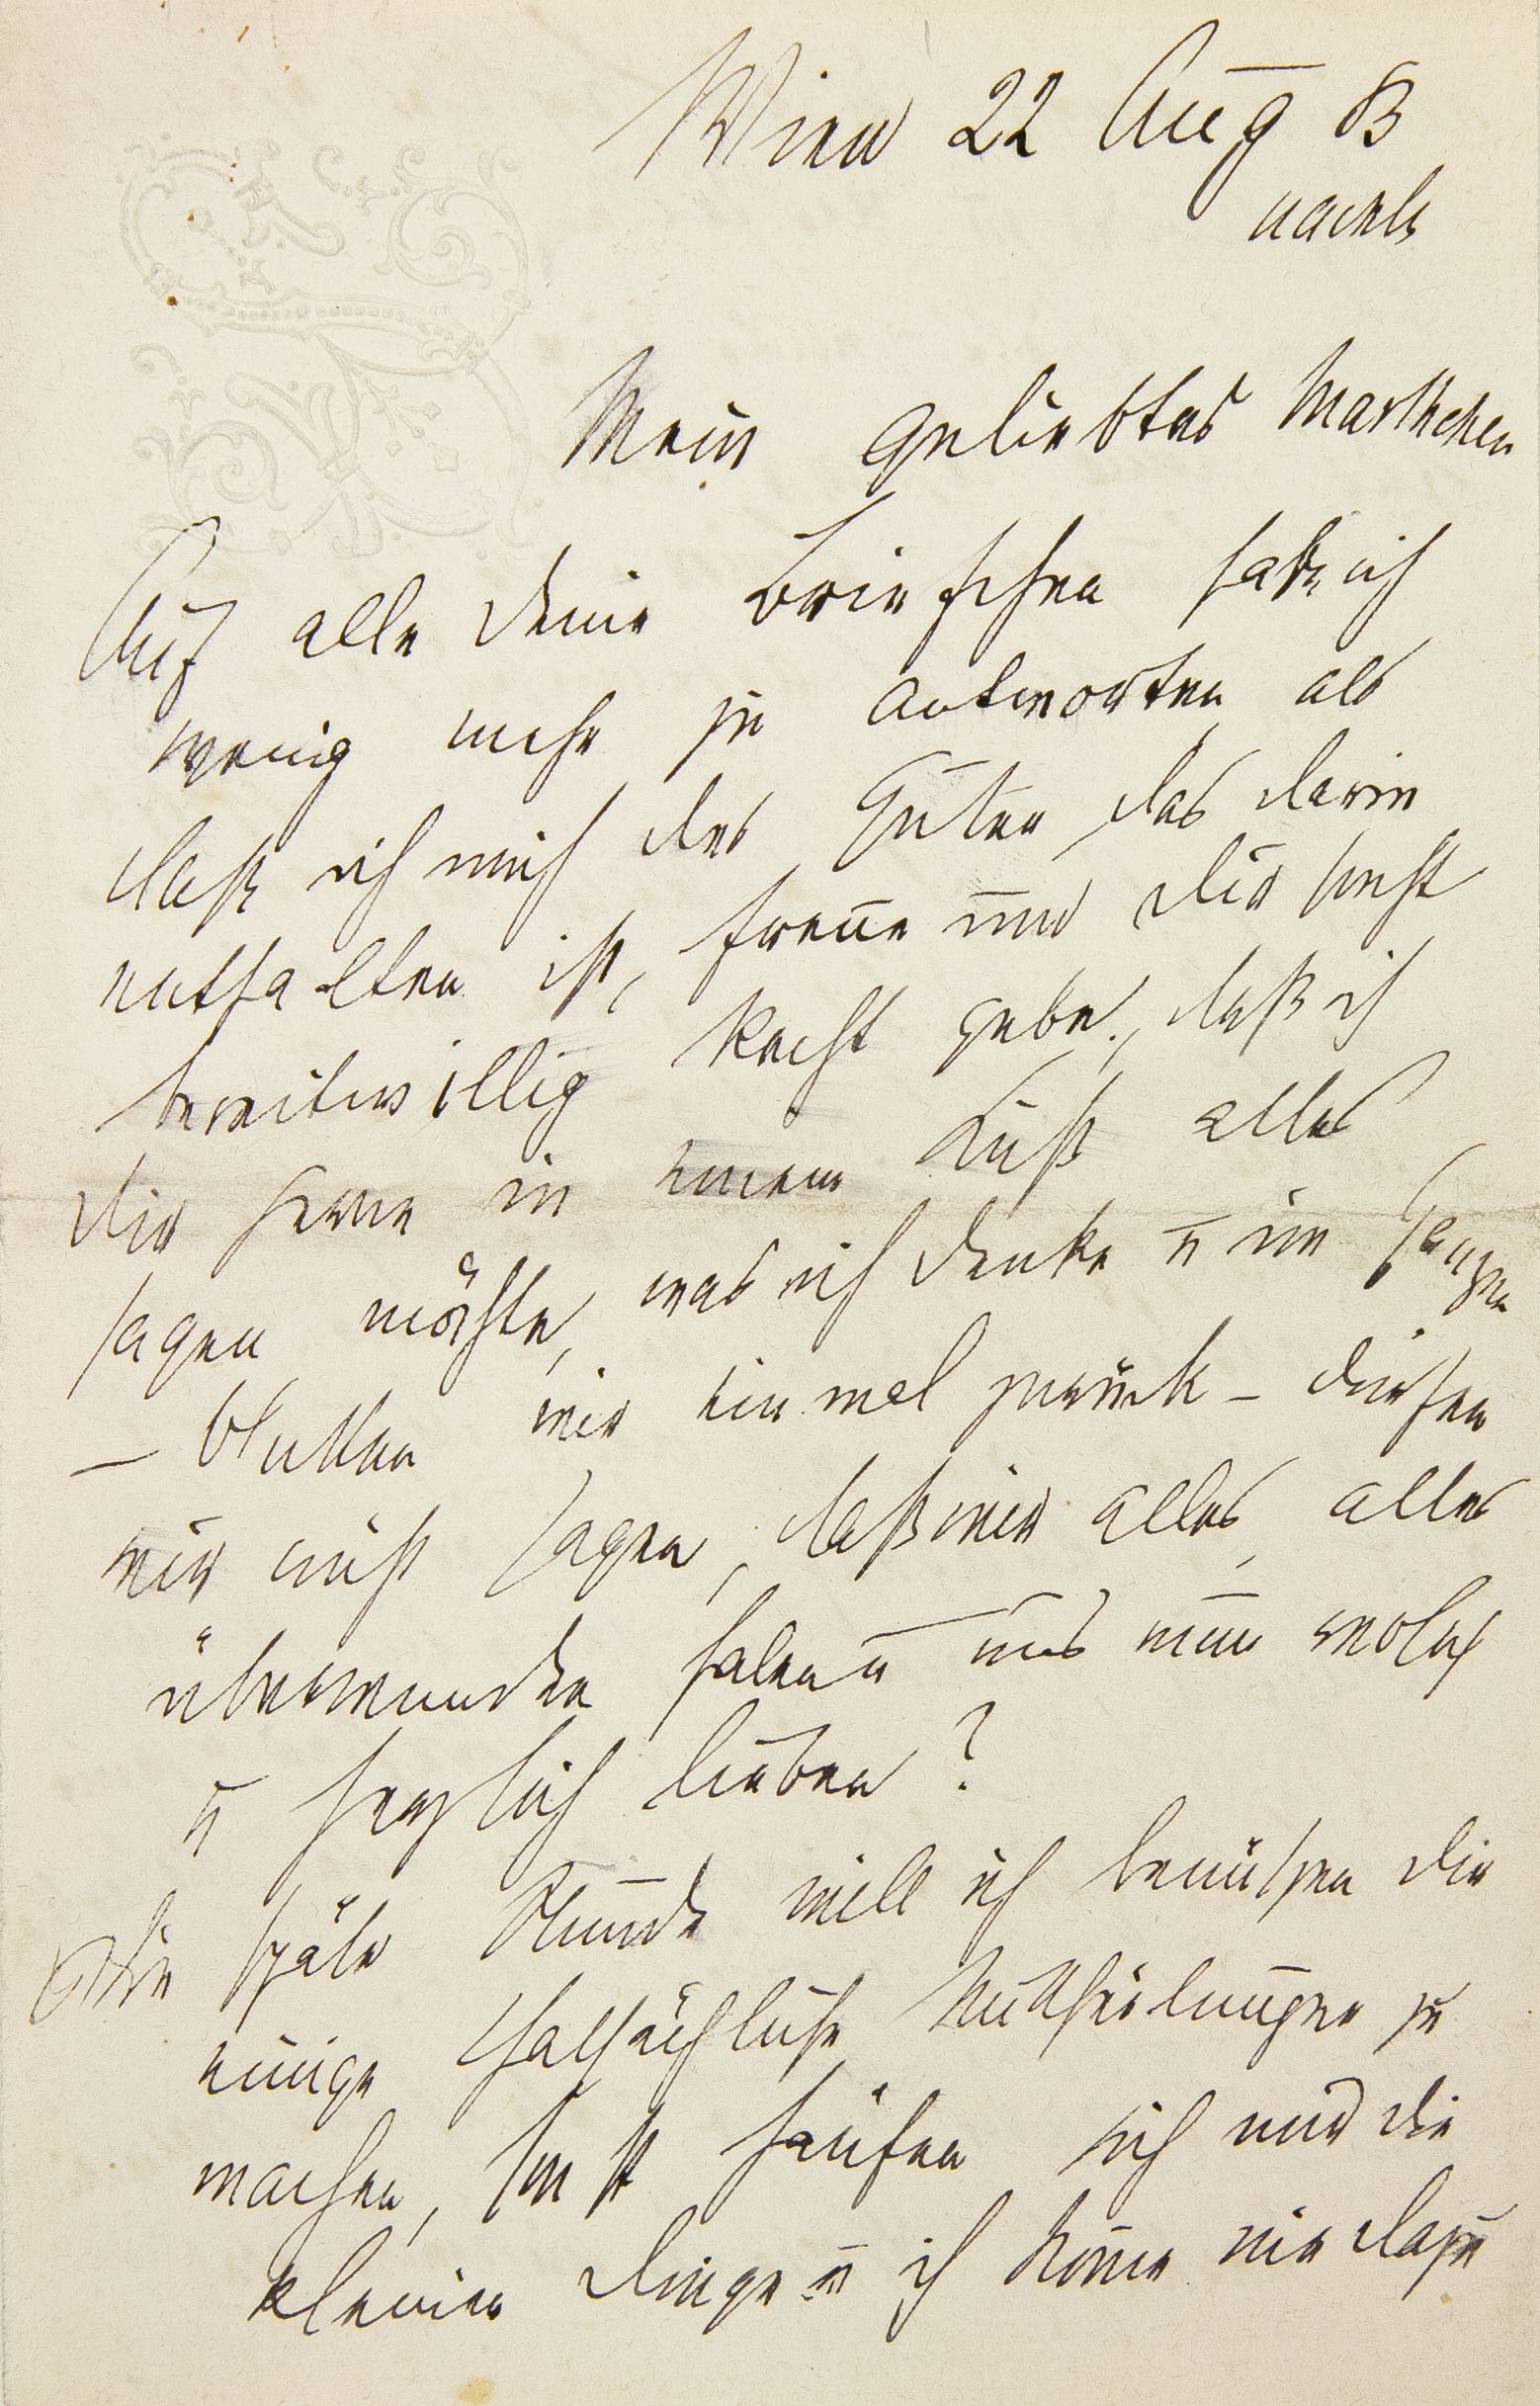 Wien 22 Aug 83
nachts
Mein geliebtes Marthchen
Auf alle Deine Briefchen habe ich
wenig mehr zu antworten als
daß ich mich des Guten, das darin
enthalten ist, freue und Dir sonst
bereitwillig Recht gebe, daß ich
Dir gerne in einem Kuß alles
sagen möchte, was ich denke u im Ganzen
– blicken wir einmal zurück – dürfen
wir nicht sagen, daß wir alles, alles
überwunden haben u uns nun wol
u herzlich lieben?
Die späte Stunde will ich benützen Dir
einige thatsächliche Mittheilungen zu
machen, sonst häufen sich mir die
kleinen Dinge u ich komme nie dazu